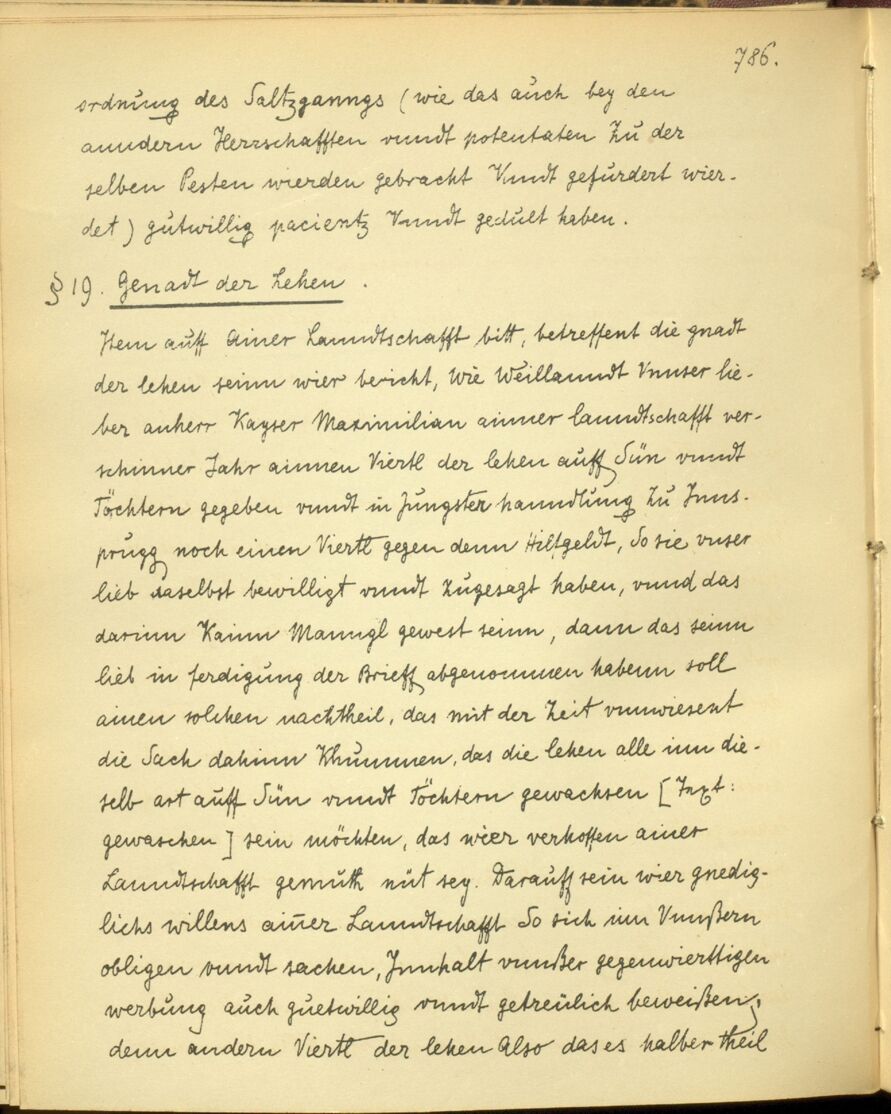 786.
ordnung des Saltzganngs (wie das auch bey den
anndern Herrschafften vnndt potentaten Zu der
selben Pesten wierden gebracht Vnndt gefürdert wier-
det) gütwillig pacientz Vnndt gedült haben.
§ 19. Genadt der Lehen.
Item auff Ainer Lanndtschafft bitt, betreffent die gnadt
der lehen seinn wier bericht, Wie Weillanndt Vnnser lie-
ber anherr Kayser Maximilian ainner lanndtschafft ver-
schinner Jahr ainnen Viertl der lehen auff Sün vnndt
Töchtern gegeben vnndt in Jungster hanndlung Zu Inns-
prugg noch einen Viertl gegen denn Hilfgeldt, So sie vnser
lieb daselbst bewilligt vnndt Zugesagt haben, vnnd das
darinn Kainn Manngl gewest seinn, dann das seinn
lieb in ferdigung der Brieff abgenommen habenn soll
ainen solchen nachtheil, das mit der Zeit vnnwiesent
die Sach dahinn Khummen, das die lehen alle inn die-
selb art auff Sün vnndt Töchtern gewachsen [Text:
gewaschen] sein möchten, das wier verhoffen ainer
Lanndtschafft gemüth nüt sey. Darauff sein wier gnedig-
lichs willens ainer Lanndtschafft So sich inn Vnnßern
obligen vnndt sachen, Innhalt vnnßer gegenwierttigen
werbung auch guetwillig vnndt getreülich beweißen,
denn andern Viertl der lehen Also das es halber theil